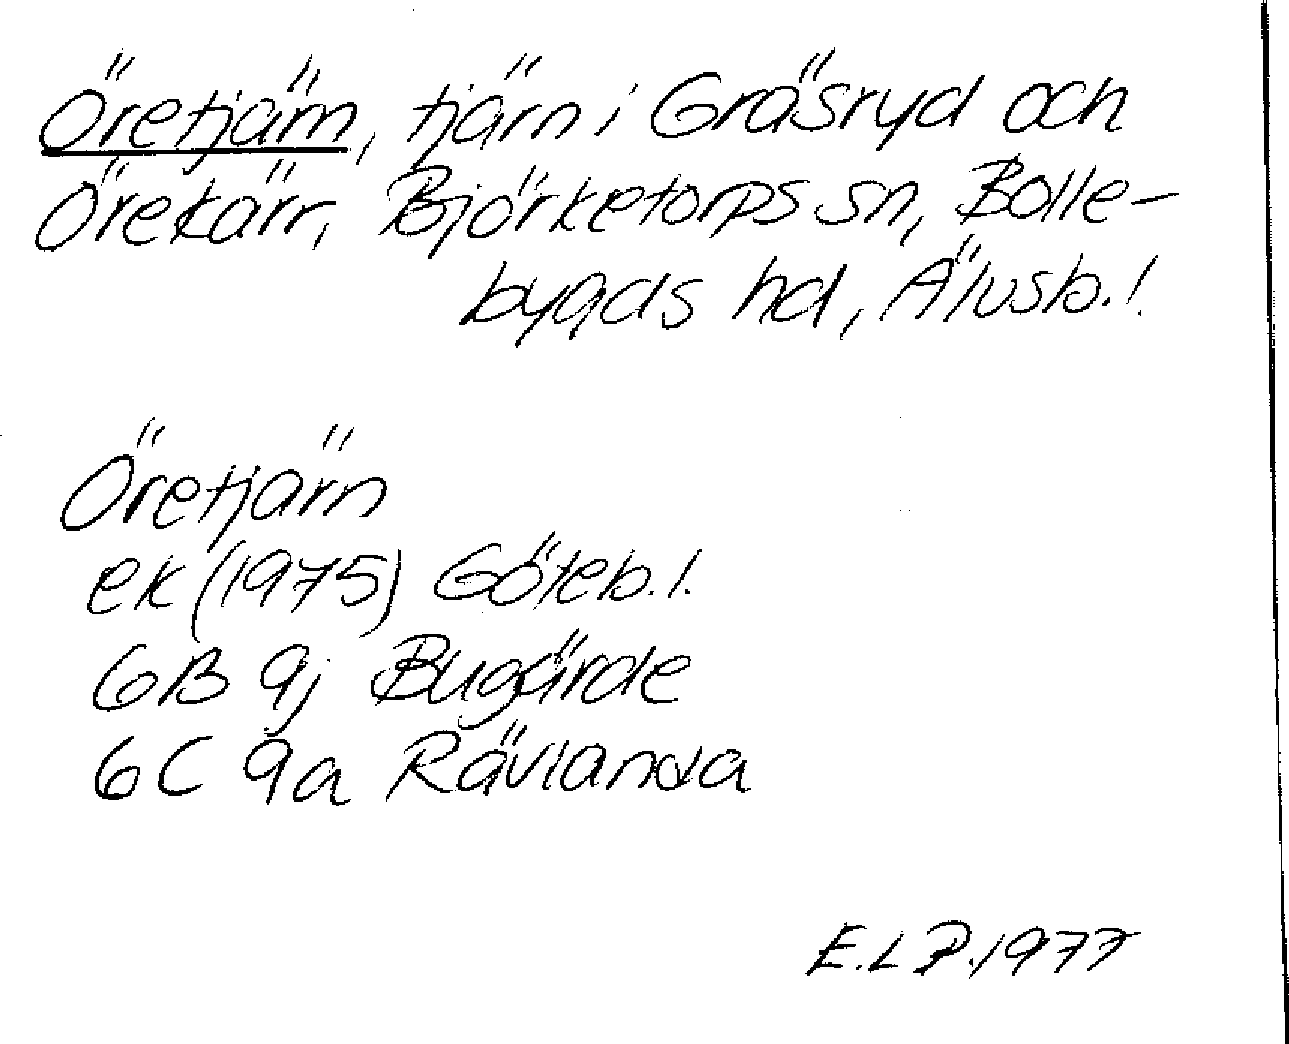 Öretjärn, tjärn i Gräsryd och
Örekärr, Björketorps sn, Bolle-
bygds hd, Älvsb. l.
Öretjärn
ek (1975) Göteb. l.
6B 9j Bugärde
6C 9a Rävlanda
E.L P. 1977